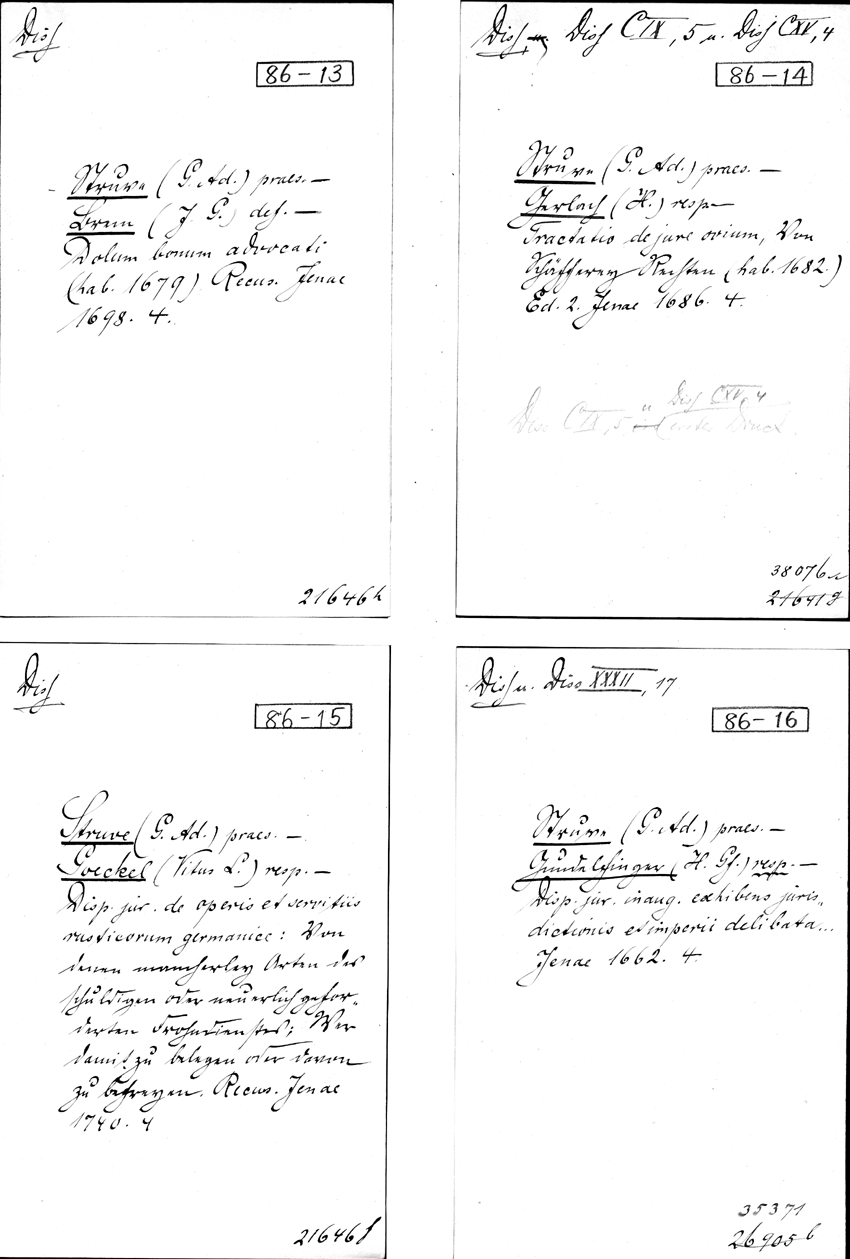 Diss
86-13
Struve (G. Ad.) praes. —
Brun (J. G.) def. —
Dolum bonum advocati
(hab. 1679) Recus. Jenae
1698. 4.
21646h
Diss, u. Diss CIX, 5 u. Diss CXV, 4
86-14
Struve (G. Ad.) praes. —
Gerlach (H.) resp —
Tractatio de jure ovium, Von
Schäfferey Rechten (hab. 1682.)
Ed. 2. Jenae 1686. 4.
Diss CXV, 4
Diss CIX, 5 erster Druck.
38076
21641g
Diss
86-15
Struve (G. Ad.) praes. —
Goeckel (Vitus L.) resp. —
Disp. jur. de operis et servitiis
rusticorum germanice: Von
denen mancherley Arten des
schuldigen oder neuerlich gefor-
derten Frohndienstes; Wer
damit zu belegen oder davon
zu befreyen. Recus. Jenae
1740. 4
21646f
Diss u. Diss XXXII, 17
86-16
Struve (G. Ad.) praes. —
Gundelfinger (H. Gf.) resp. —
Disp. jur. inaug. exhibens juris-
dictionis et imperii delibata...
Jenae 1662. 4.
35371
26905b